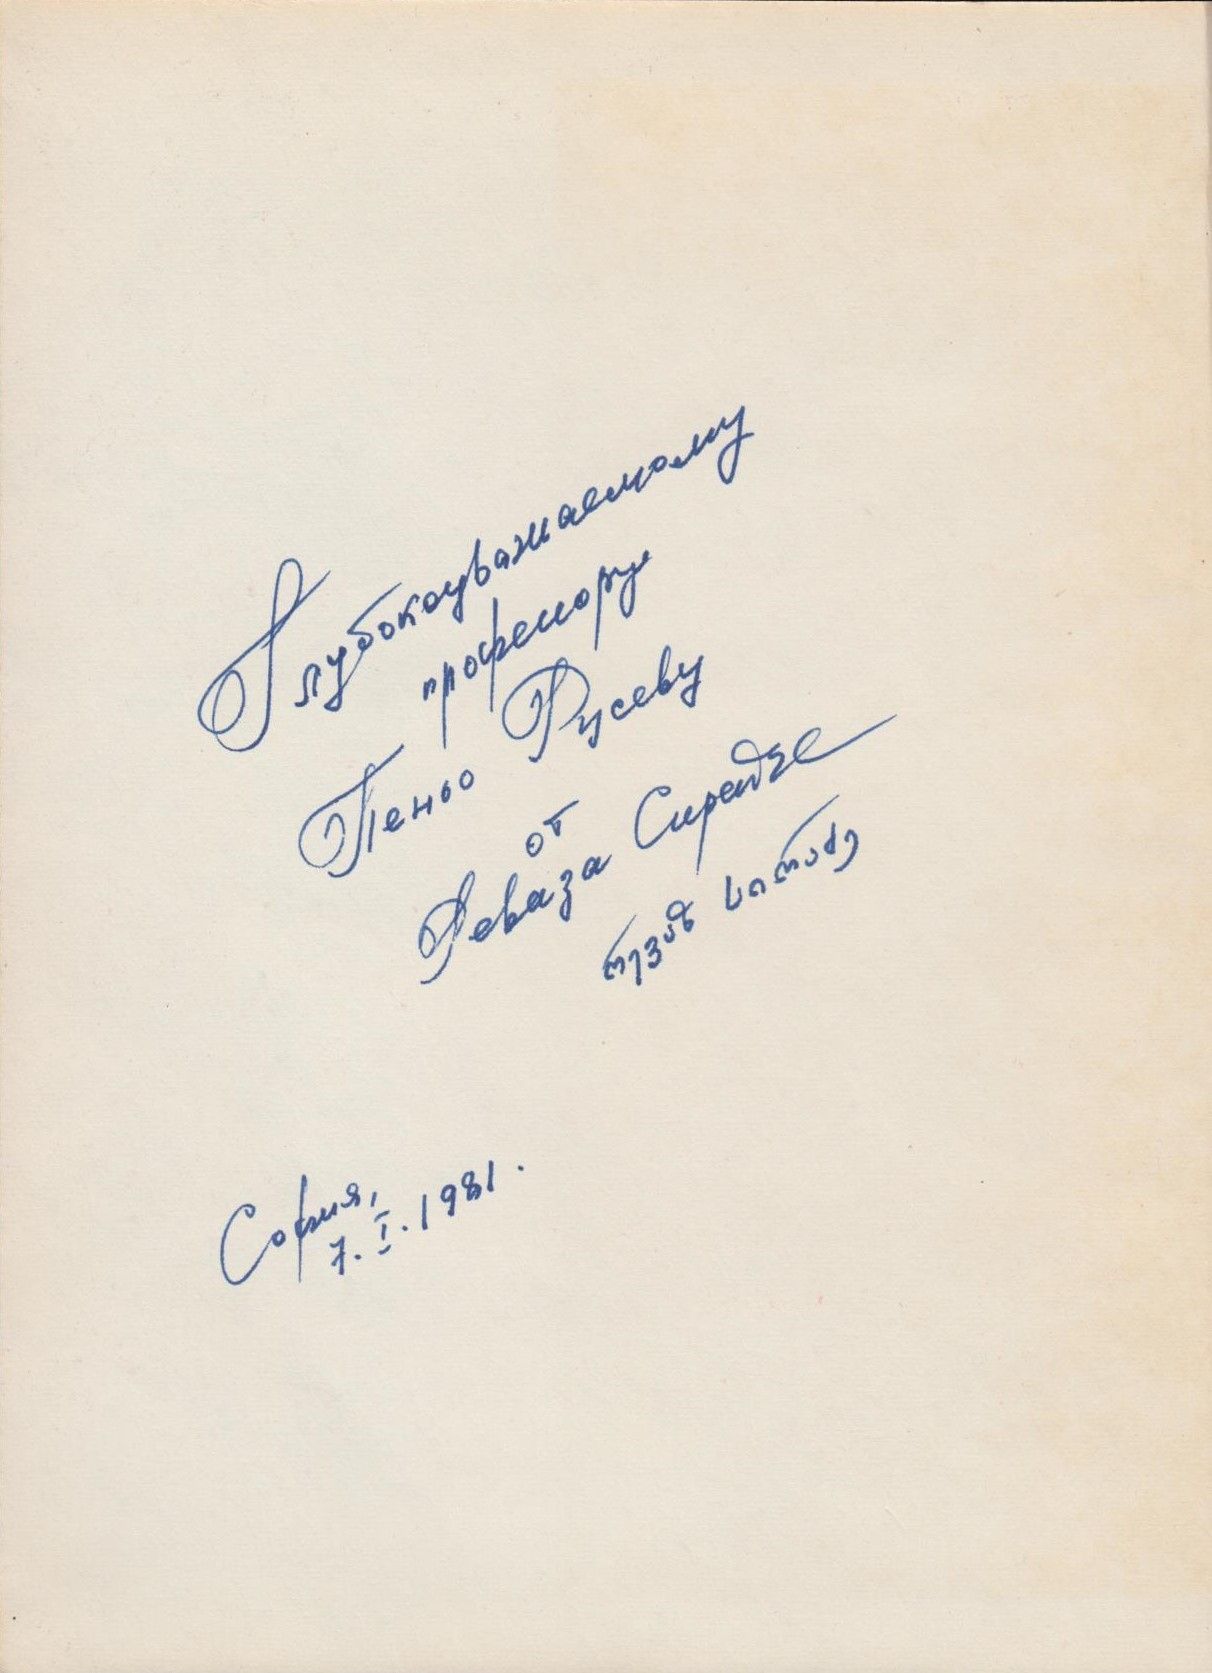 Глубокоуважаемому
профессору
Пеньо Русеву
от
Реваза Сирадзе
რევაზ სირაძე
София,
7. I. 1981.